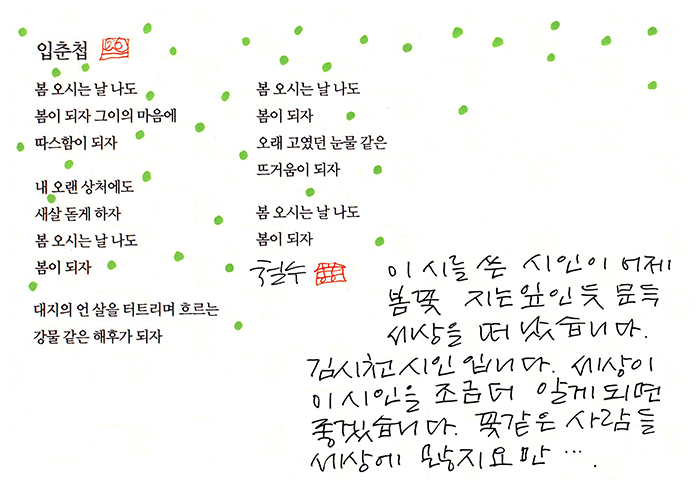 입춘첩
봄 오시는 날 나도
봄이 되자 그이의 마음에
따스함이 되자
내 오랜 상처에도
새살 돋게 하자
봄 오시는 날 나도
봄이 되자
대지의 언 살을 터트리며 흐르는
강물 같은 해후가 되자
봄 오시는 날 나도
봄이 되자
오래 고였던 눈물 같은
뜨거움이 되자
봄 오시는 날 나도
봄이 되자
철수
이 시를 쓴 시인이 어제
봄꽃 지는 잎인듯 문득
세상을 떠났습니다.
김시천 시인입니다. 세상이
이 시인을 조금 더 알게 되면
좋겠습니다. 꽃같은 사람들
세상에 많지요만 ….